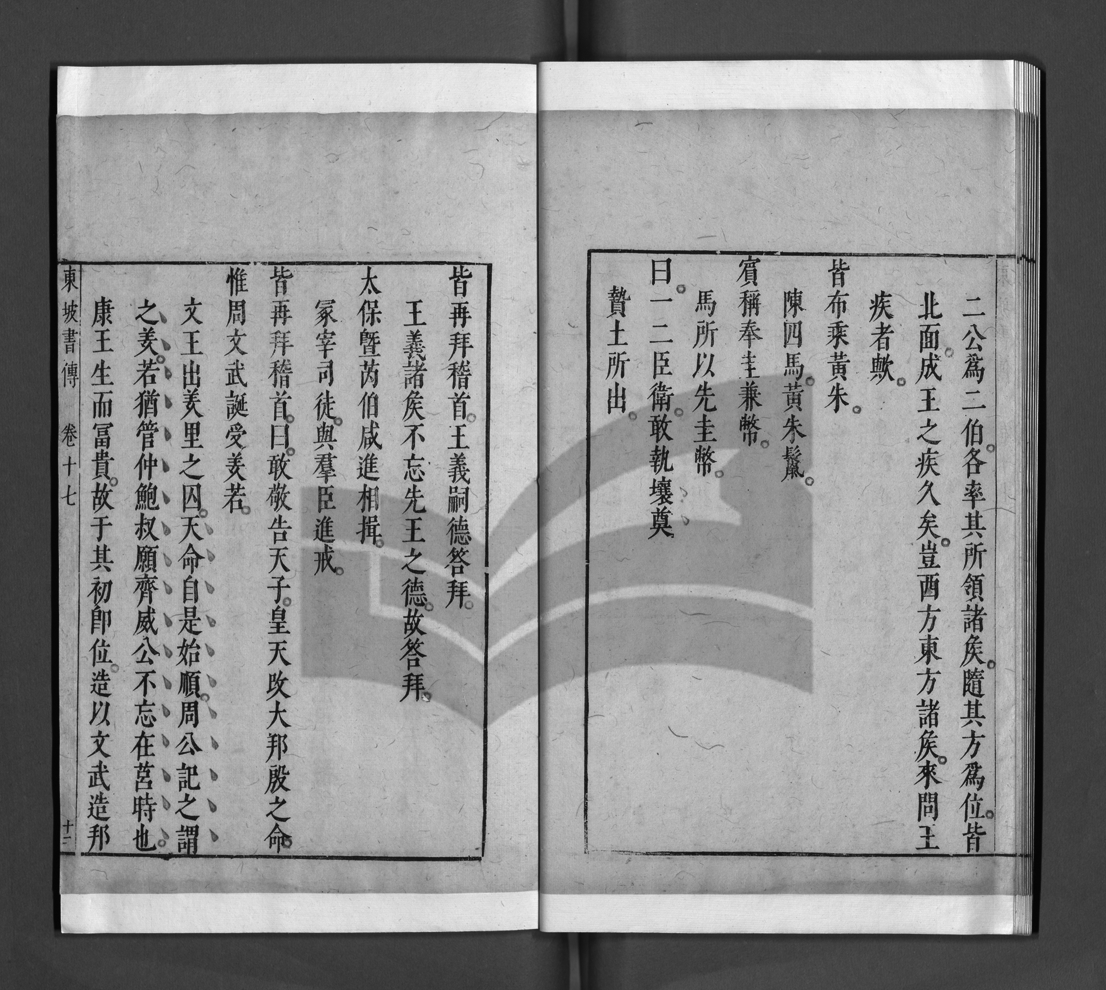 二公爲二伯。各率其所領諸矦。隨其方爲位。皆
北面。成王之疾久矣。豈西方東方諸矦。來問王
疾者歟。
皆布乘黃朱。
陳四馬。黃朱鬣。
賓稱奉圭兼幣。
馬所以先圭幣。
曰。一二臣衛。敢執壤奠。
贄土所出。
皆再拜稽首。王義嗣德答拜。
王義諸矦不忘先王之德。故答拜。
太保曁芮伯咸進相揖。
冢宰司徒。與羣臣進戒。
皆再拜稽首。曰。敢敬告天子。皇天攺大邦殷之命。
惟周文武誕受羑若。
文王出羑里之囚。天命自是始順。周公記之謂
之羑。若猶管仲鮑叔願齊威公不忘在莒時也。
康王生而冨貴。故于其初卽位。造以文武造邦
東坡書傳 卷十七 十一